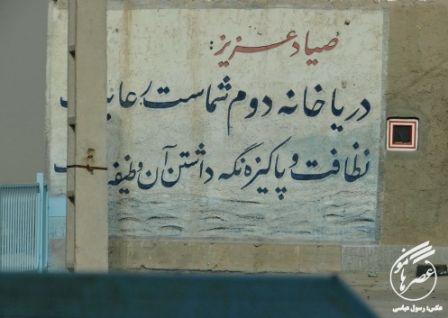 صیاد عزیز:
دریا خانه دوم شماست رعایت
نظافت و پاکیزه نگه داشتن آن وظیفه
عکس: رسول عباسی